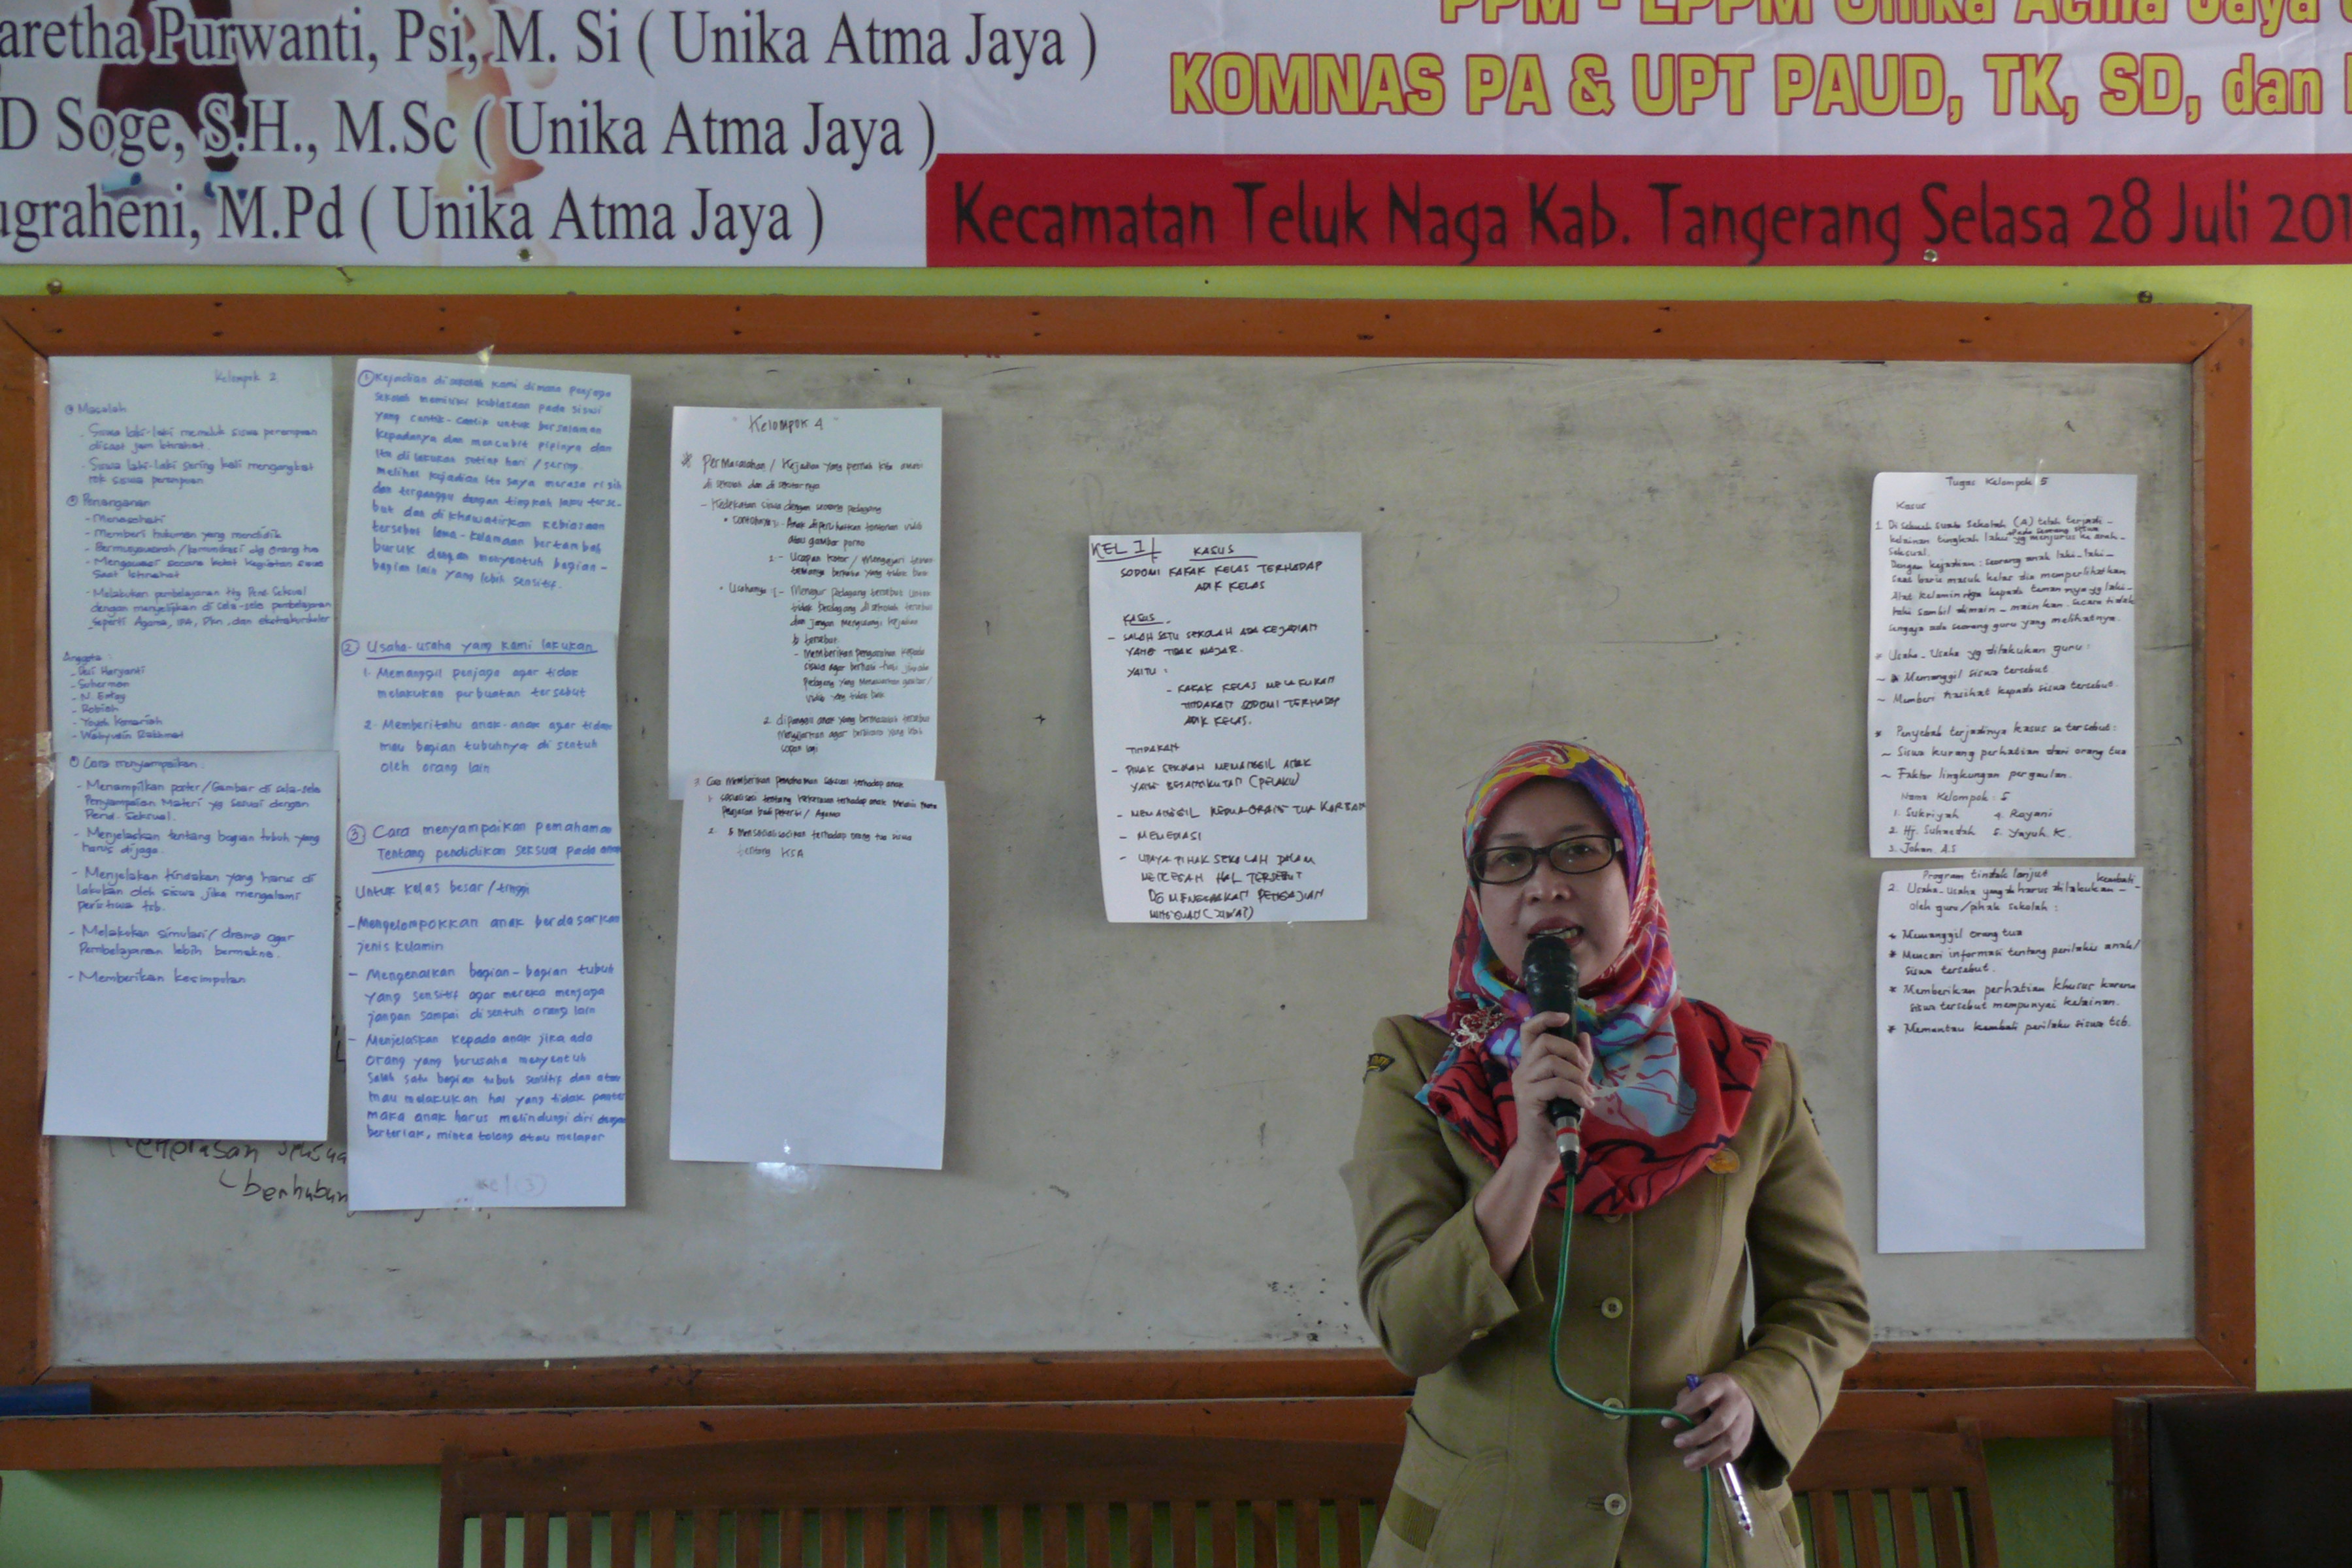 aretha Purwanti, Psi, M. Si ( Unika Atma Jaya )
D Soge, S.H., M.Sc ( Unika Atma Jaya )
ugraheni, M.Pd ( Unika Atma Jaya )
PPM - LPPM Unika Atma Jaya
KOMNAS PA & UPT PAUD, TK, SD, dan
Kecamatan Teluk Naga Kab. Tangerang Selasa 28 Juli 201
Kelompok 2
Masalah
- Siswa laki-laki memeluk siswa perempuan
disaat jam istirahat.
- Siswa laki-laki sering kali mengangkat
rok siswa perempuan
Penanganan
- Menasehati
- Memberi hukuman yang mendidik
- Bermusyawarah / komunikasi dg orang tua
- Mengawasi secara ketat kegiatan siswa
saat istirahat
- Melakukan pembelajaran ttg Pend. Seksual
dengan menyelipkan di sela-sela pembelajaran
seperti Agama, IPA, PKn, dan ekstrakurikuler
Anggota :
- Haryanti
- Suherman
- N. Entay
- Robiah
- Yoyoh Komariah
- Wahyudin Rakhmat
Cara menyampaikan :
- Menampilkan poster/Gambar di sela-sela
Penyampaian Materi yg sesuai dengan
Pend. Seksual.
- Menjelaskan tentang bagian tubuh yang
harus dijaga.
- Menjelaskan tindakan yang harus di
lakukan oleh siswa jika mengalami
peristiwa tsb.
- Melakukan simulasi/ drama agar
Pembelajaran lebih bermakna.
- Memberikan kesimpulan
① Kejadian di sekolah kami dimana penjaga
sekolah memiliki kebiasaan pada siswi
yang cantik-cantik untuk bersalaman
kepadanya dan mencubit pipinya dan
itu di lakukan setiap hari / sering.
melihat kejadian itu saya merasa risih
dan terganggu dengan tingkah laku terse-
but dan dikhawatirkan kebiasaan
tersebut lama-kelamaan bertambah
buruk dengan menyentuh bagian-
bagian lain yang lebih sensitif.
② Usaha-usaha yang kami lakukan
1. Memanggil penjaga agar tidak
melakukan perbuatan tersebut
2. Memberitahu anak-anak agar tidak
mau bagian tubuhnya di sentuh
oleh orang lain
③ Cara menyampaikan pemahaman
Tentang pendidikan seksual pada anak
Untuk kelas besar / tinggi
- Mengelompokkan anak berdasarkan
jenis kelamin
- Mengenalkan bagian-bagian tubuh
yang sensitif agar mereka menjaga
jangan sampai di sentuh orang lain
- Menjelaskan kepada anak jika ada
orang yang berusaha menyentuh
salah satu bagian tubuh sensitif dan atau
mau melakukan hal yang tidak pantas
maka anak harus melindungi diri dengan
berteriak, minta tolong atau melapor
kel (3)
"Kelompok 4"
Permasalahan / Kejadian yang pernah kita
di sekolah dan di sekitarnya
- Kedekatan siswa dengan seorang pedagang
Contohnya : - Anak diperlihatkan tontonan video
atau gambar porno
2 - Ucapan kotor / mengajari teman
- Menegur pedagang tersebut untuk
tidak berdagang di sekolah tersebut
dan jangan mengulangi kejadian
tersebut
- Memberikan pengarahan kepada
siswa agar berhati-hati
video yang tidak baik
2. dipanggil anak yang bermasalah tersebut
sopan lagi
3. Cara memberikan pemahaman seksual terhadap anak
1. sosialisasi tentang kekerasan terhadap anak
Pelajaran budi pekerti / Agama
2. Mensosialisasikan terhadap orang tua siswa
tentang KSA
KEL I
KASUS
SODOMI KAKAK KELAS TERHADAP
ADIK KELAS
KASUS.
- SALAH SATU SEKOLAH ADA KEJADIAN
YANG TIDAK WAJAR.
YAITU :
- KAKAK KELAS MELAKUKAN
TINDAKAN SODOMI TERHADAP
ADIK KELAS.
TINDAKAN
- PIHAK SEKOLAH MEMANGGIL ANAK
YANG BERSANGKUTAN (PELAKU)
- MEMANGGIL KEDUA ORANG TUA KORBAN
- MEMEDIASI
- UPAYA PIHAK SEKOLAH DALAM
MENCEGAH HAL TERSEBUT
DG MENGGALAKAN PENGAJIAN
Tugas Kelompok 5
Kasus
1. Di sebuah suatu sekolah (A) telah terjadi
pada seorang siswa
kelainan tingkah laku yg menjurus ke arah
seksual.
Dengan kejadian : seorang anak laki-laki
saat baru masuk kelas dia memperlihatkan
Alat kelamin nya kepada teman nya yg laki-
laki sambil dimain-mainkan. secara tidak
sengaja ada seorang guru yang melihatnya.
* Usaha-Usaha yg dilakukan guru :
~ Memanggil siswa tersebut
~ Memberi nasihat kepada siswa tersebut.
* Penyebab terjadinya kasus tersebut :
~ Siswa kurang perhatian dari orang tua
~ Faktor lingkungan pergaulan.
Nama Kelompok : 5
1. Sukriyah 4. Royani
2. Hj. Suhaedah 5. Yayuh. K.
3. Johan. A.S
Program tindak lanjut
kembali
2. Usaha-usaha yang harus dilakukan
oleh guru/pihak sekolah :
* Memanggil orang tua
* Mencari informasi tentang perilaku anak/
siswa tersebut.
* Memberikan perhatian khusus karena
siswa tersebut mempunyai kelainan.
* Memantau kembali perilaku siswa tsb.
berhubun